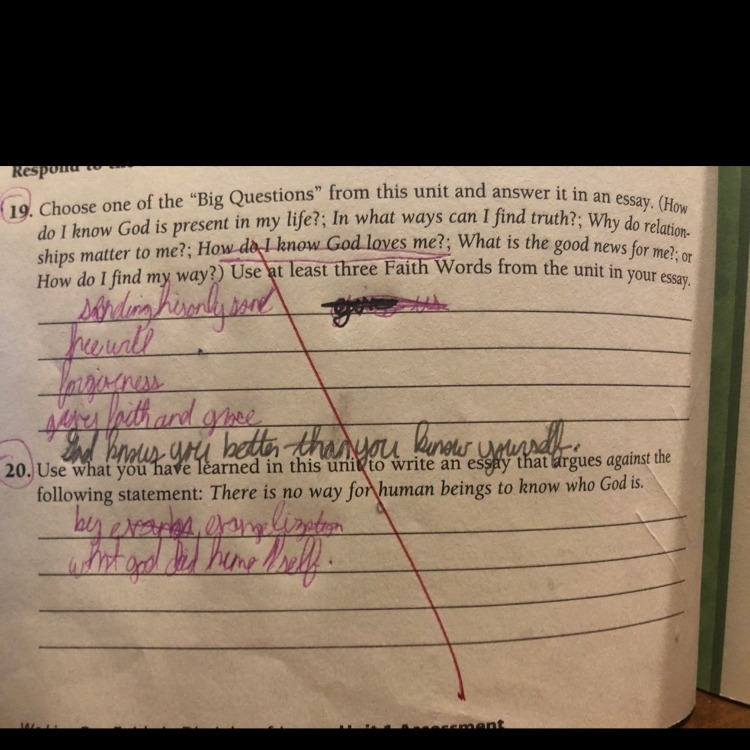 Respond to the
19. Choose one of the “Big Questions” from this unit and answer it in an essay. (How
do I know God is present in my life?; In what ways can I find truth?; Why do relation-
ships matter to me?; How do I know God loves me?; What is the good news for me?; or
How do I find my way?) Use at least three Faith Words from the unit in your essay.
sending his only sond
free will
forgiveness
gives faith and grace
God knows you better than you know yourself.
20. Use what you have learned in this unit to write an essay that argues against the
following statement: There is no way for human beings to know who God is.
by evangelization
what god did himself.
Unit 1 Assessment